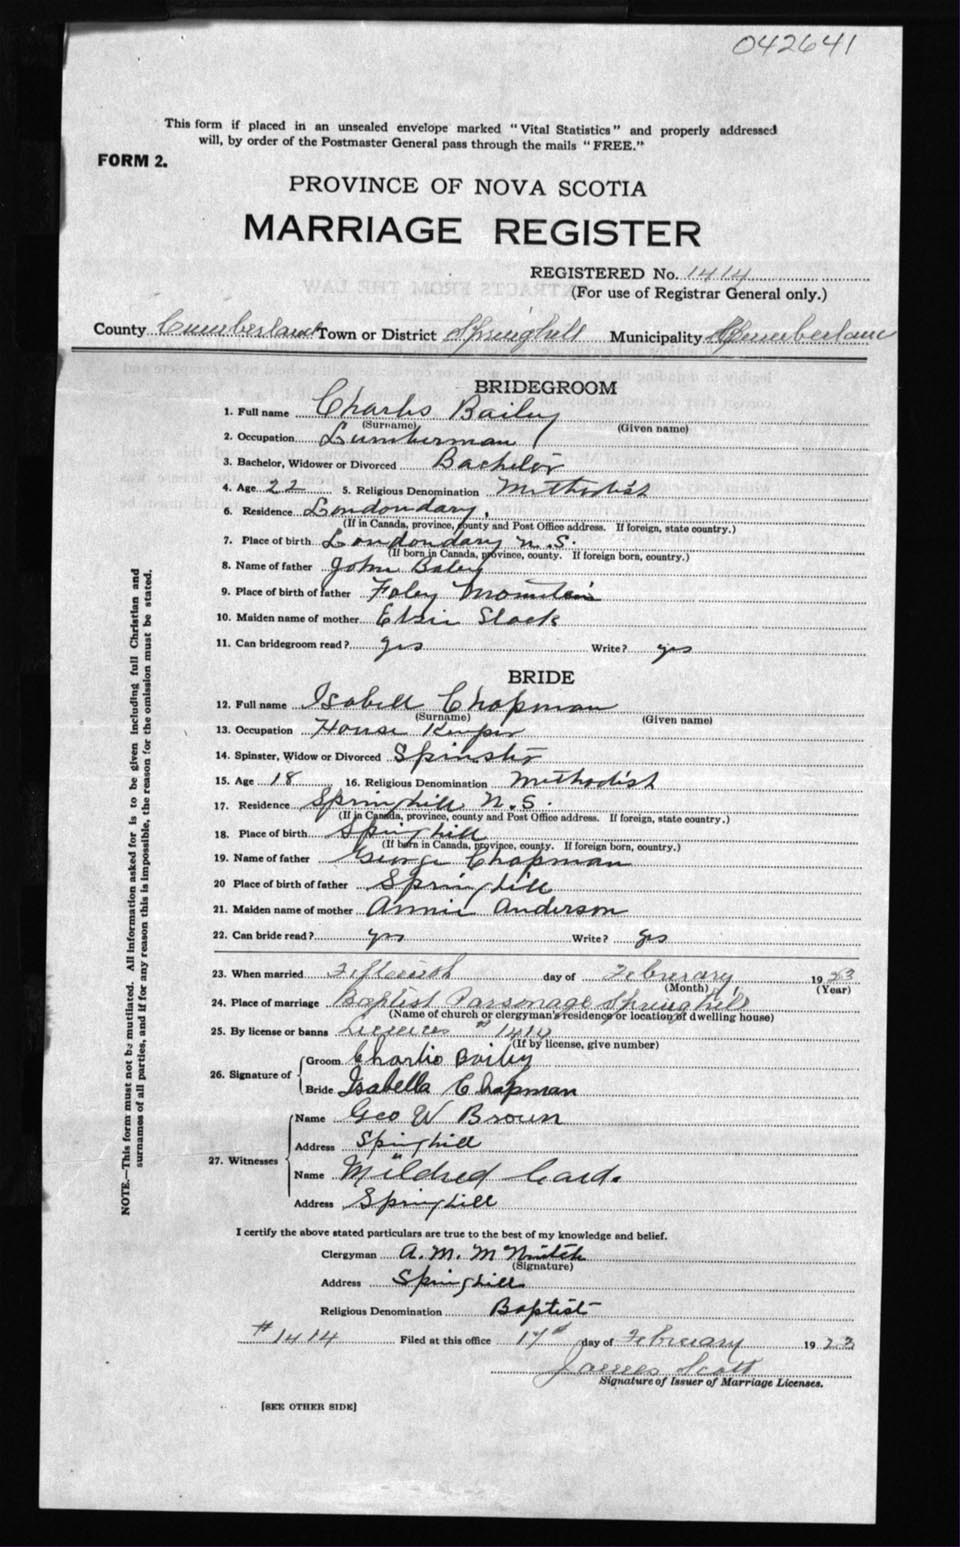 042641
This form if placed in an unsealed envelope marked "Vital Statistics" and properly addressed
will, by order of the Postmaster General pass through the mails "FREE."
FORM 2.
PROVINCE OF NOVA SCOTIA
MARRIAGE REGISTER
REGISTERED No. 1414
(For use of Registrar General only.)
County Cumberland Town or District Springhill Municipality Cumberland
BRIDEGROOM
1. Full name Charles Bailey
(Surname) (Given name)
2. Occupation Lumberman
3. Bachelor, Widower or Divorced Bachelor
4. Age 22 5. Religious Denomination Methodist
6. Residence Londondary,
(If in Canada, province, county and Post Office address. If foreign, state country.)
7. Place of birth Londondary N.S.
(If born in Canada, province, county. If foreign born, country.)
8. Name of father John Baley
9. Place of birth of father Foley Mountain
10. Maiden name of mother Elsie Slack
11. Can bridegroom read? yes Write? yes
BRIDE
12. Full name Isabell Chapman
(Surname) (Given name)
13. Occupation House Keeper
14. Spinster, Widow or Divorced Spinster
15. Age 18 16. Religious Denomination Methodist
17. Residence Springhill N.S.
(If in Canada, province, county and Post Office address. If foreign, state country.)
18. Place of birth Springhill
(If born in Canada, province, county. If foreign born, country.)
19. Name of father George Chapman
20 Place of birth of father Springhill
21. Maiden name of mother Annie Anderson
22. Can bride read? yes Write? yes
23. When married Fifteenth day of Februrary, 1923
(Month) (Year)
24. Place of marriage Baptist Parsonage Springhill
(Name of church or clergyman's residence or location of dwelling house)
25. By license or banns # 1414
(If by license, give number)
26. Signature of Groom Charlie Bailey
Bride Isabella Chapman
27. Witnesses Name Geo W Brown
Address Springhill
Name Mildred Card.
Address Springhill
I certify the above stated particulars are true to the best of my knowledge and belief.
Clergyman A. M. McNintch
(Signature)
Address Springhill
Religious Denomination Baptist
#1414 Filed at this office 17th day of February 1923
James Scott
Signature of Issuer of Marriage Licenses.
[SEE OTHER SIDE]
NOTE.—This form must not be mutilated. All information asked for is to be given including full Christian and
surnames of all parties, and if for any reason this is impossible, the reason for the omission must be stated.